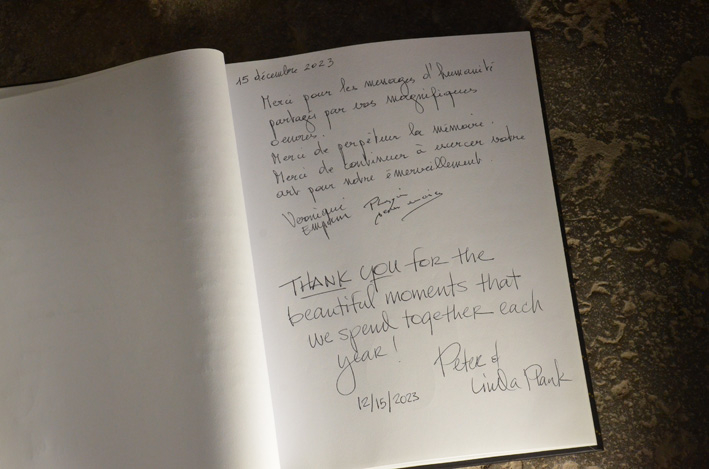 15 décembre 2023
Merci pour les messages d'humanité
partagés par vos magnifiques
oeuvres.
Merci de perpétuer la mémoire.
Merci de continuer à exercer votre
art pour notre émerveillement.
Veronique
THANK you for the
beautiful moments that
we spend together each
year!
Peter &
Linda Plank
12/15/2023